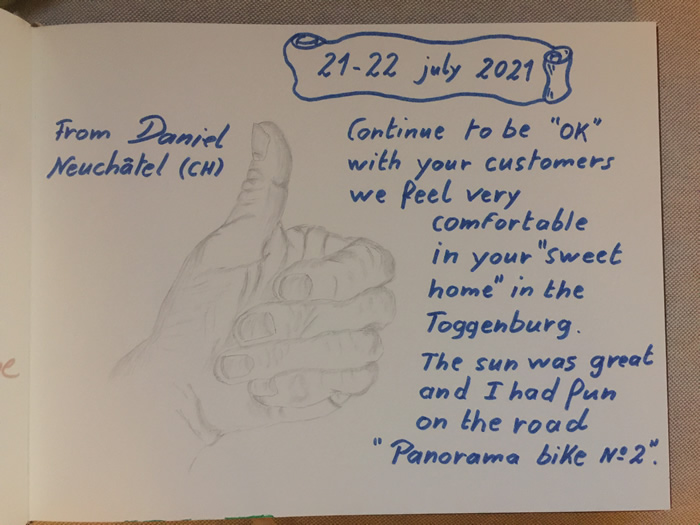 21-22 july 2021
From Daniel
Neuchâtel (CH)
Continue to be "OK"
with your customers
we feel very
comfortable
in your "sweet
home" in the
Toggenburg.
The sun was great
and I had fun
on the road
"Panorama bike Nº2".